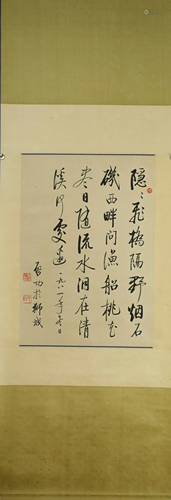 隱〻飛橋隔野烟石
磯西畔問漁船桃花
盡日隨流水洞在清
溪何處邊 一九八一年冬日
啓功於獅城